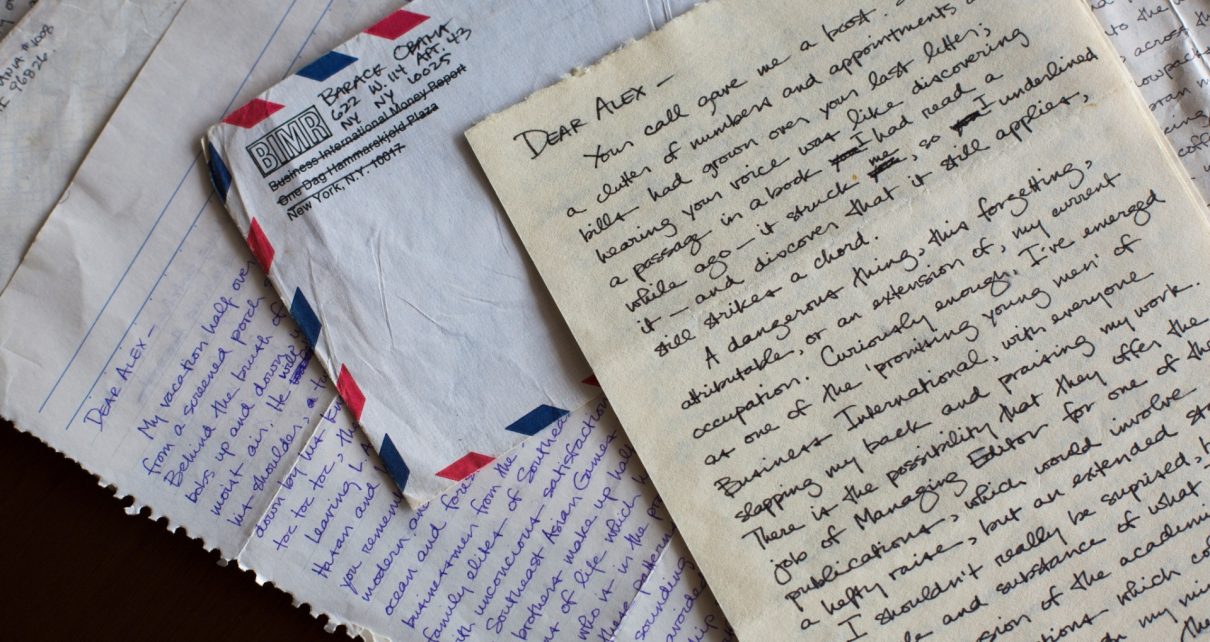 ANIA #1008
96826
BARACK OBAMA
622 W. 114 APT. 43
NY NY 10025
BIMR
Business International Money Report
One Dag Hammarskjold Plaza
New York, N.Y. 10017
DEAR ALEX —
My vacation half over
from a screened porch
Behind the brush of
bobs up and down,
moist air. He will
his shoulders, a
down by his
toc toc toc, the
Leaving LA
Hunan and
you remem
modern
ocean and fores
businessmen from the
family elites of Southea
with unconscious satisfaction
Southeast Asian Games
brothers make up half
of life which
who is in the
these pattern
sounding
avoide
DEAR ALEX —
Your call gave me a boost.
a clutter of numbers and appointments
bills had grown over your last letter;
hearing your voice was like discovering
a passage in a book I had read a
while ago — it struck me, so I underlined
it — and discover that it still applies,
still strikes a chord.
A dangerous thing, this forgetting,
attributable, or an extension of, my current
occupation. Curiously enough, I've emerged
as one of the "promising young men" of
Business International, with everyone
slapping my back and praising my work.
There is the possibility that they offer the
job of Managing Editor for one of the
publications, which would involve
a hefty raise, but an extended sta
I shouldn't really be suprised,
le and substance of what
sion of the academi
ions which co
my mi
the